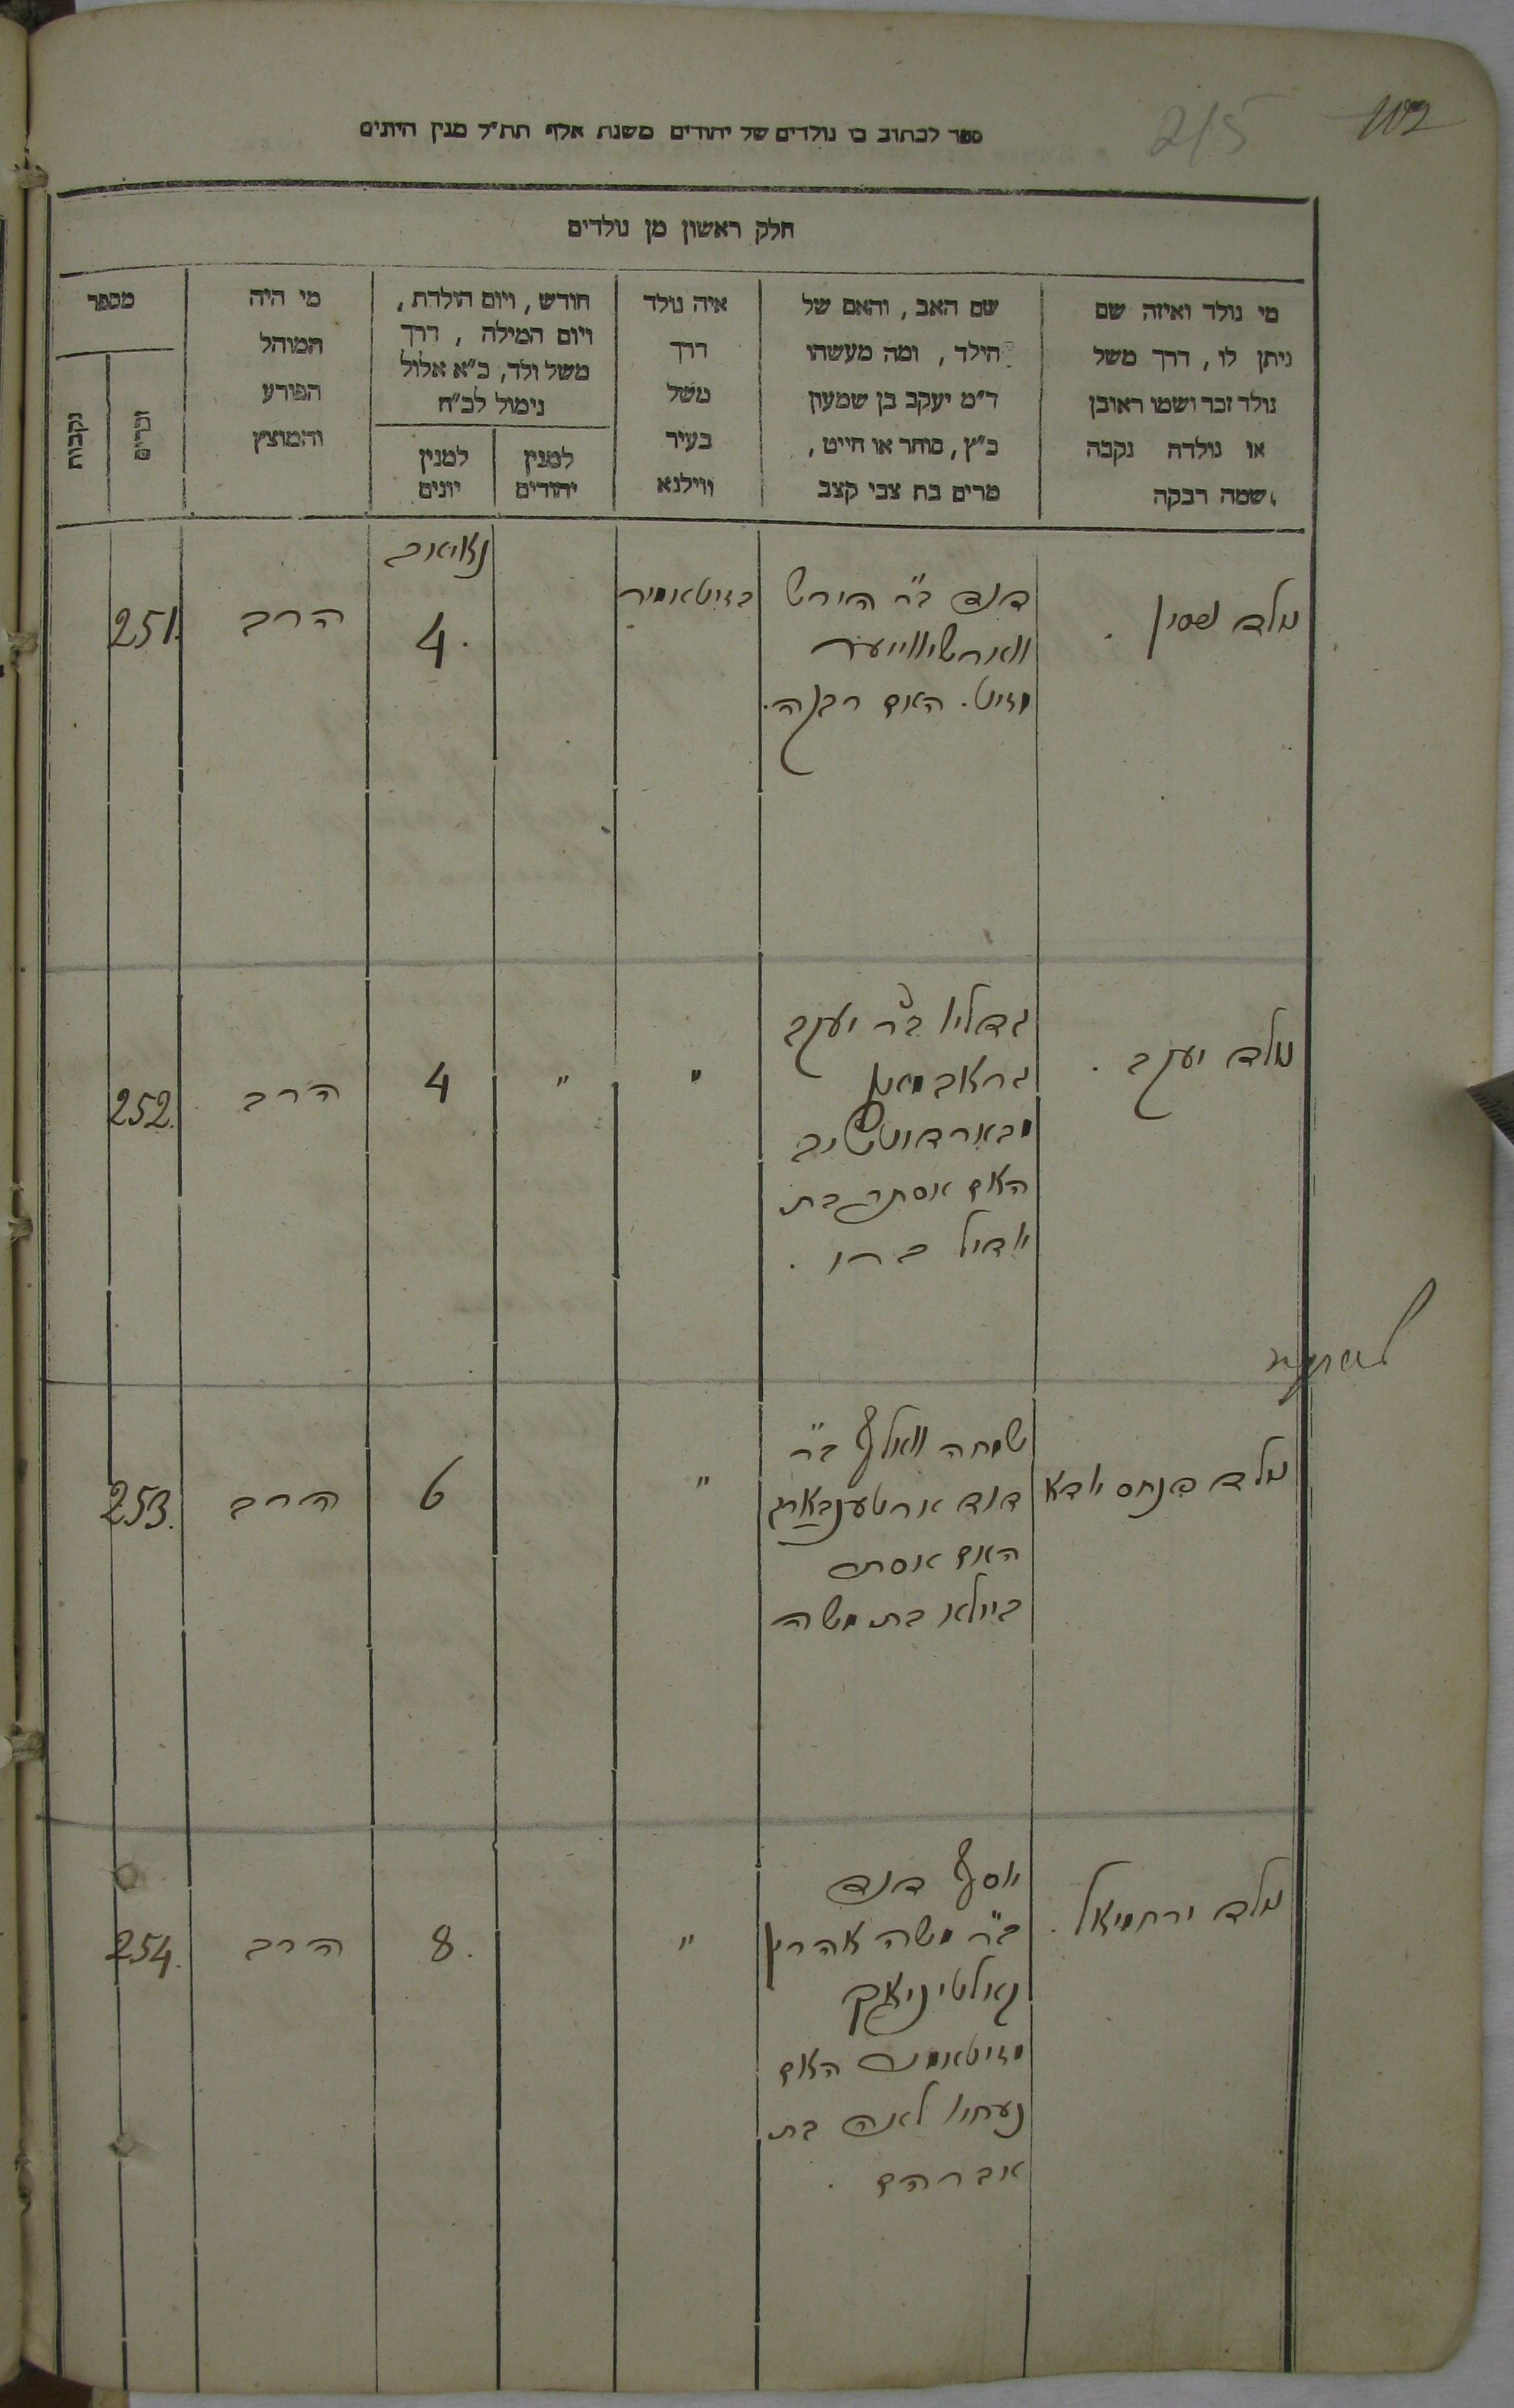 102
215
ספר לכתוב בו נולדים של יהודים משנת אלף תת״ל מנין היונים
חלק ראשון מן נולדים
מי נולד ואיזה שם
ניתן לו, דרך משל
נולד זכר ושמו ראובן
או נולדה נקבה
שמה רבקה,
שם האב, והאם של
הילד, ומה מעשהו
ד״מ יעקב בן שמעון
כ״ץ, סוחר או חייט,
מרים בת צבי קצב
איה נולד
דרך
משל
בעיר
ווילנא
חודש, ויום הולדת,
ויום המילה, דרך
משל ולד, כ״א אלול
נימול לכ״ח
למנין
יהודים
למנין
יונים
מי היה
המוהל
הפורע
והמוצץ
מספר
זכרים
נקבות
נולד
דוד ב״ר הירש
מזיט. האם רבקה.
בזיטאמיר
4.
הרב
251.
נולד יעקב.
גדליו ב״ר יעקב
האם אסתר בת
"
"
4
הרב
252.
נולד פנחס
שמחה וואלף ב״ר
דוד
האם אסתר
ביילא בת משה
"
6
הרב
253.
נולד ירחמיאל.
יוסף דוד
ב״ר משה אהרן
מזיטאמיר האם
לאה בת
אברהם.
"
8.
הרב
254.